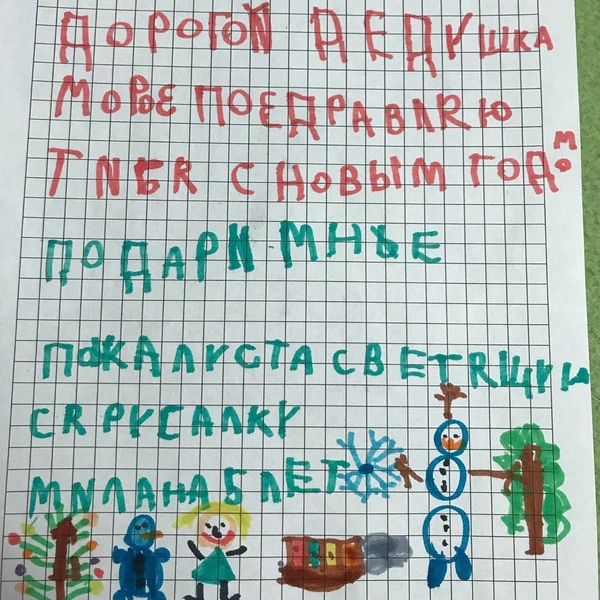 ДОРОГОЙ ДЕДУШКА
МОРОЕ ПОЕДРАВЛЯЮ
ТИБЯ С НОВЫМ ГОДОМ
ПОДАРИ МНЬЕ
ПОЖАЛУСТА СВЕТЯЩУЮ
СЯ РУСАЛКУ
МИЛАНА 5 ЛЕТ